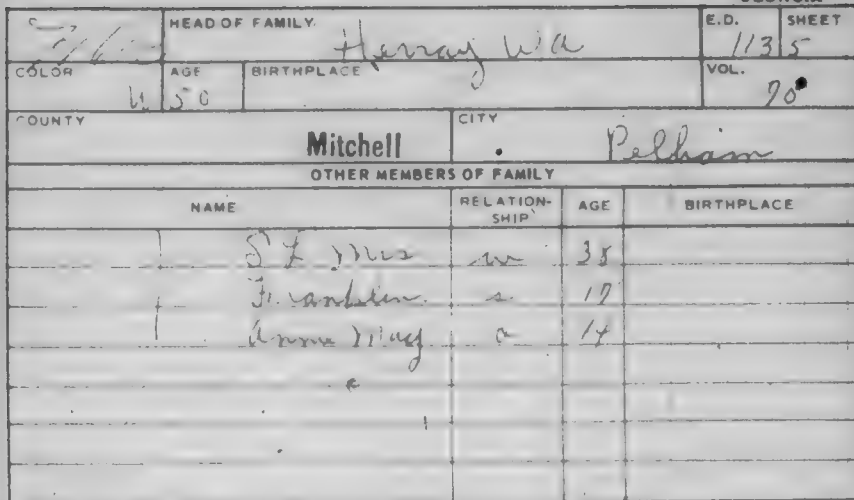 GEORGIA
HEAD OF FAMILY Herray W A E.D. 113 SHEET 5
COLOR W AGE 50 BIRTHPLACE VOL. 70
COUNTY Mitchell CITY Pelham
OTHER MEMBERS OF FAMILY
NAME RELATION-SHIP AGE BIRTHPLACE
Mrs w 38
Franklin s
Anna May 14